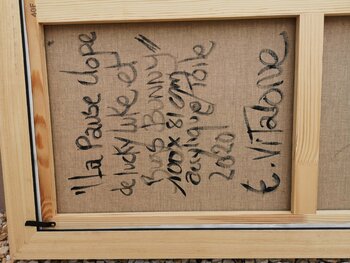 "La Pause clope
de lucky luke et
Bugs Bunny"
100x81cm
acrylique/Toile
2020
E. Vitalone